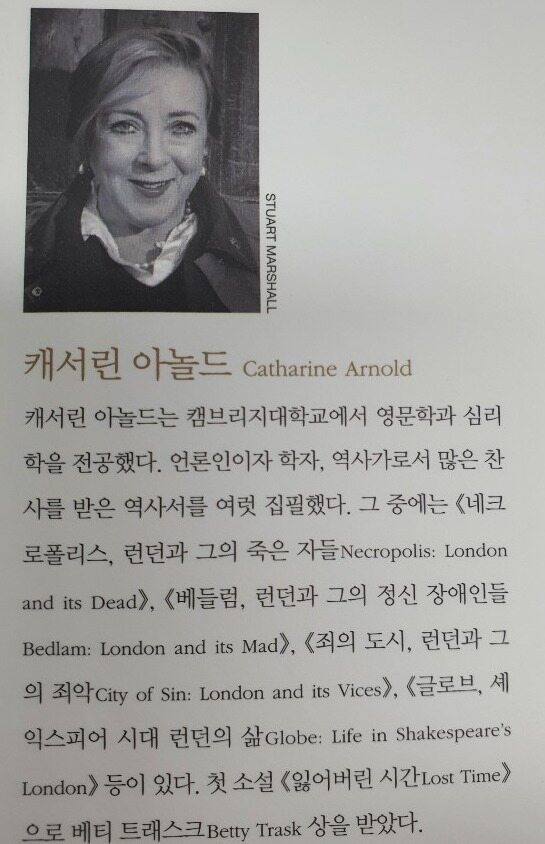 STUART MARSHALL
캐서린 아놀드 Catharine Arnold
캐서린 아놀드는 캠브리지대학교에서 영문학과 심리
학을 전공했다. 언론인이자 학자, 역사가로서 많은 찬
사를 받은 역사서를 여럿 집필했다. 그 중에는 《네크
로폴리스, 런던과 그의 죽은 자들Necropolis: London
and its Dead》, 《베들럼, 런던과 그의 정신 장애인들
Bedlam: London and its Mad》, 《죄의 도시, 런던과 그
의 죄악City of Sin: London and its Vices》, 《글로브, 셰
익스피어 시대 런던의 삶Globe: Life in Shakespeare's
London》 등이 있다. 첫 소설 《잃어버린 시간Lost Time》
으로 베티 트래스크Betty Trask 상을 받았다.